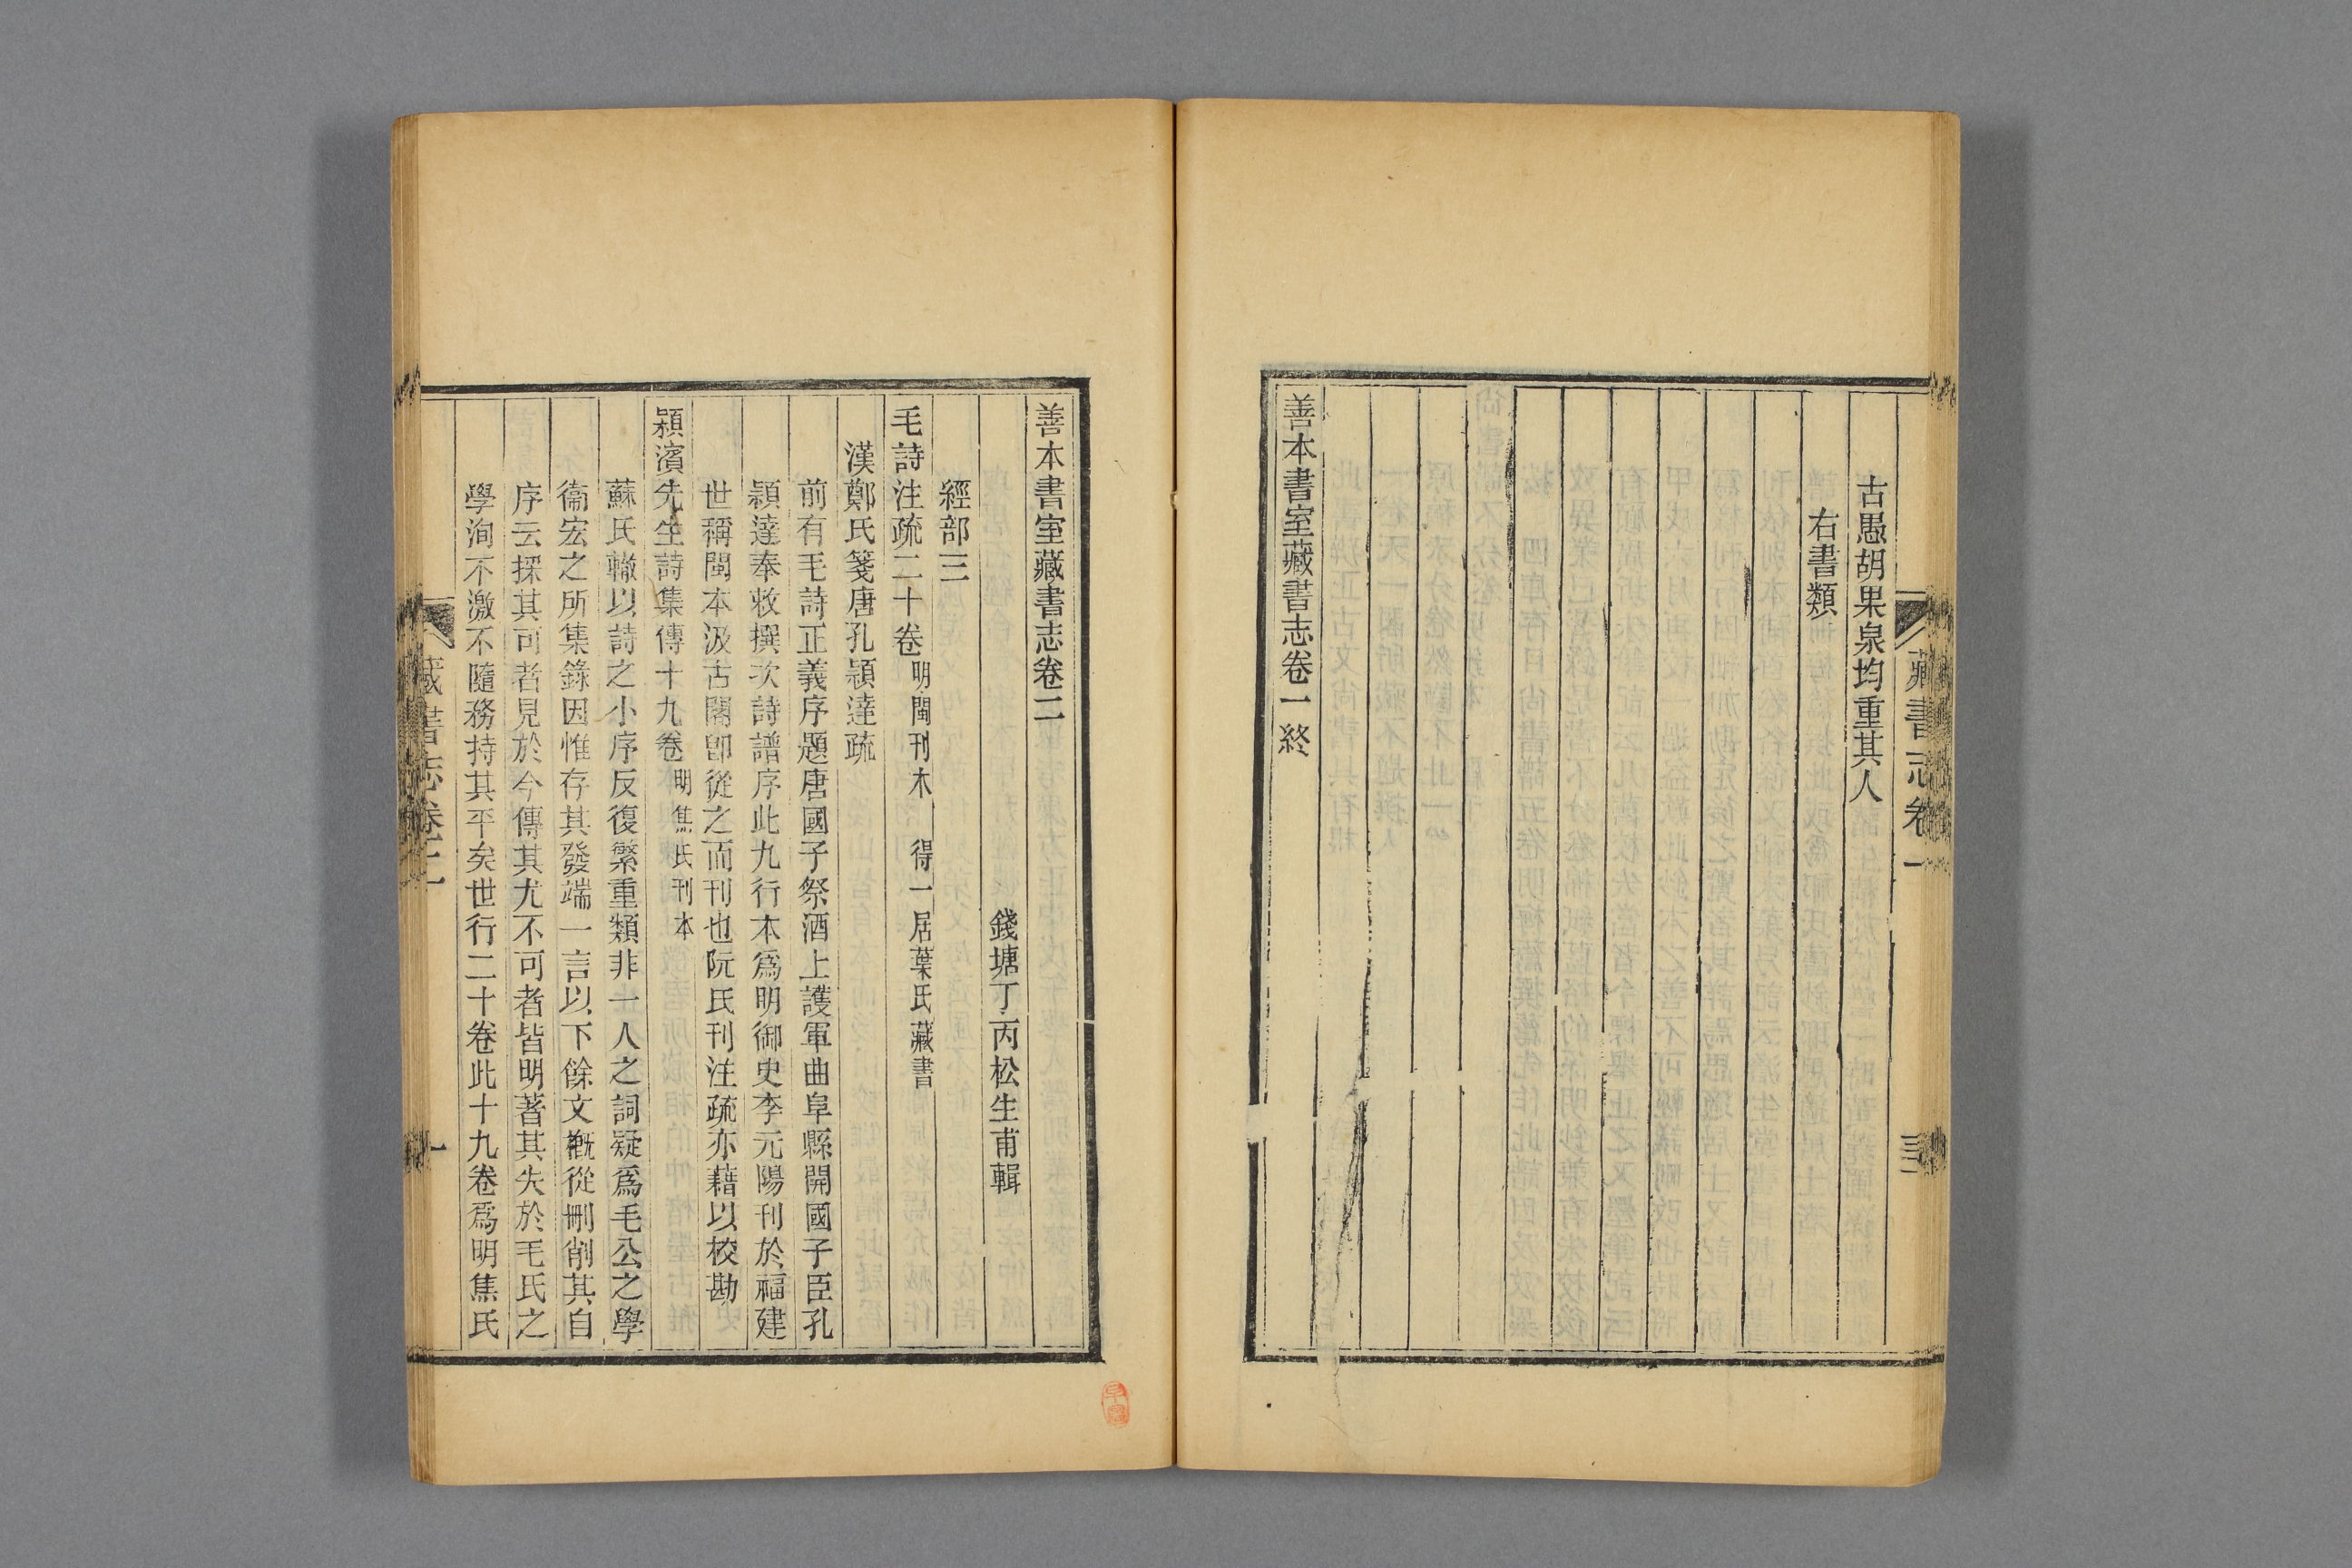 古愚胡果泉均重其人
右書類
善本書室藏書志卷一終
藏書志卷一
善本書室藏書志卷二
錢塘丁丙松生甫輯
經部三
毛詩注疏二十卷 明閩刊本 得一居葉氏藏書
漢鄭氏箋唐孔穎達疏
前有毛詩正義序題唐國子祭酒上護軍曲阜縣開國子臣孔
穎達奉敕撰次詩譜序此九行本爲明御史李元陽刊於福建
世稱閩本汲古閣卽從之而刊也阮氏刊注疏亦藉以校勘
潁濱先生詩集傳十九卷 明焦氏刊本
蘇氏轍以詩之小序反復繁重類非一人之詞疑爲毛公之學
衞宏之所集錄因惟存其發端一言以下餘文槪從刪削其自
序云採其可者見於今傳其尤不可者皆明著其失於毛氏之
學洵不激不隨務持其平矣世行二十卷此十九卷爲明焦氏
藏書志卷二
一